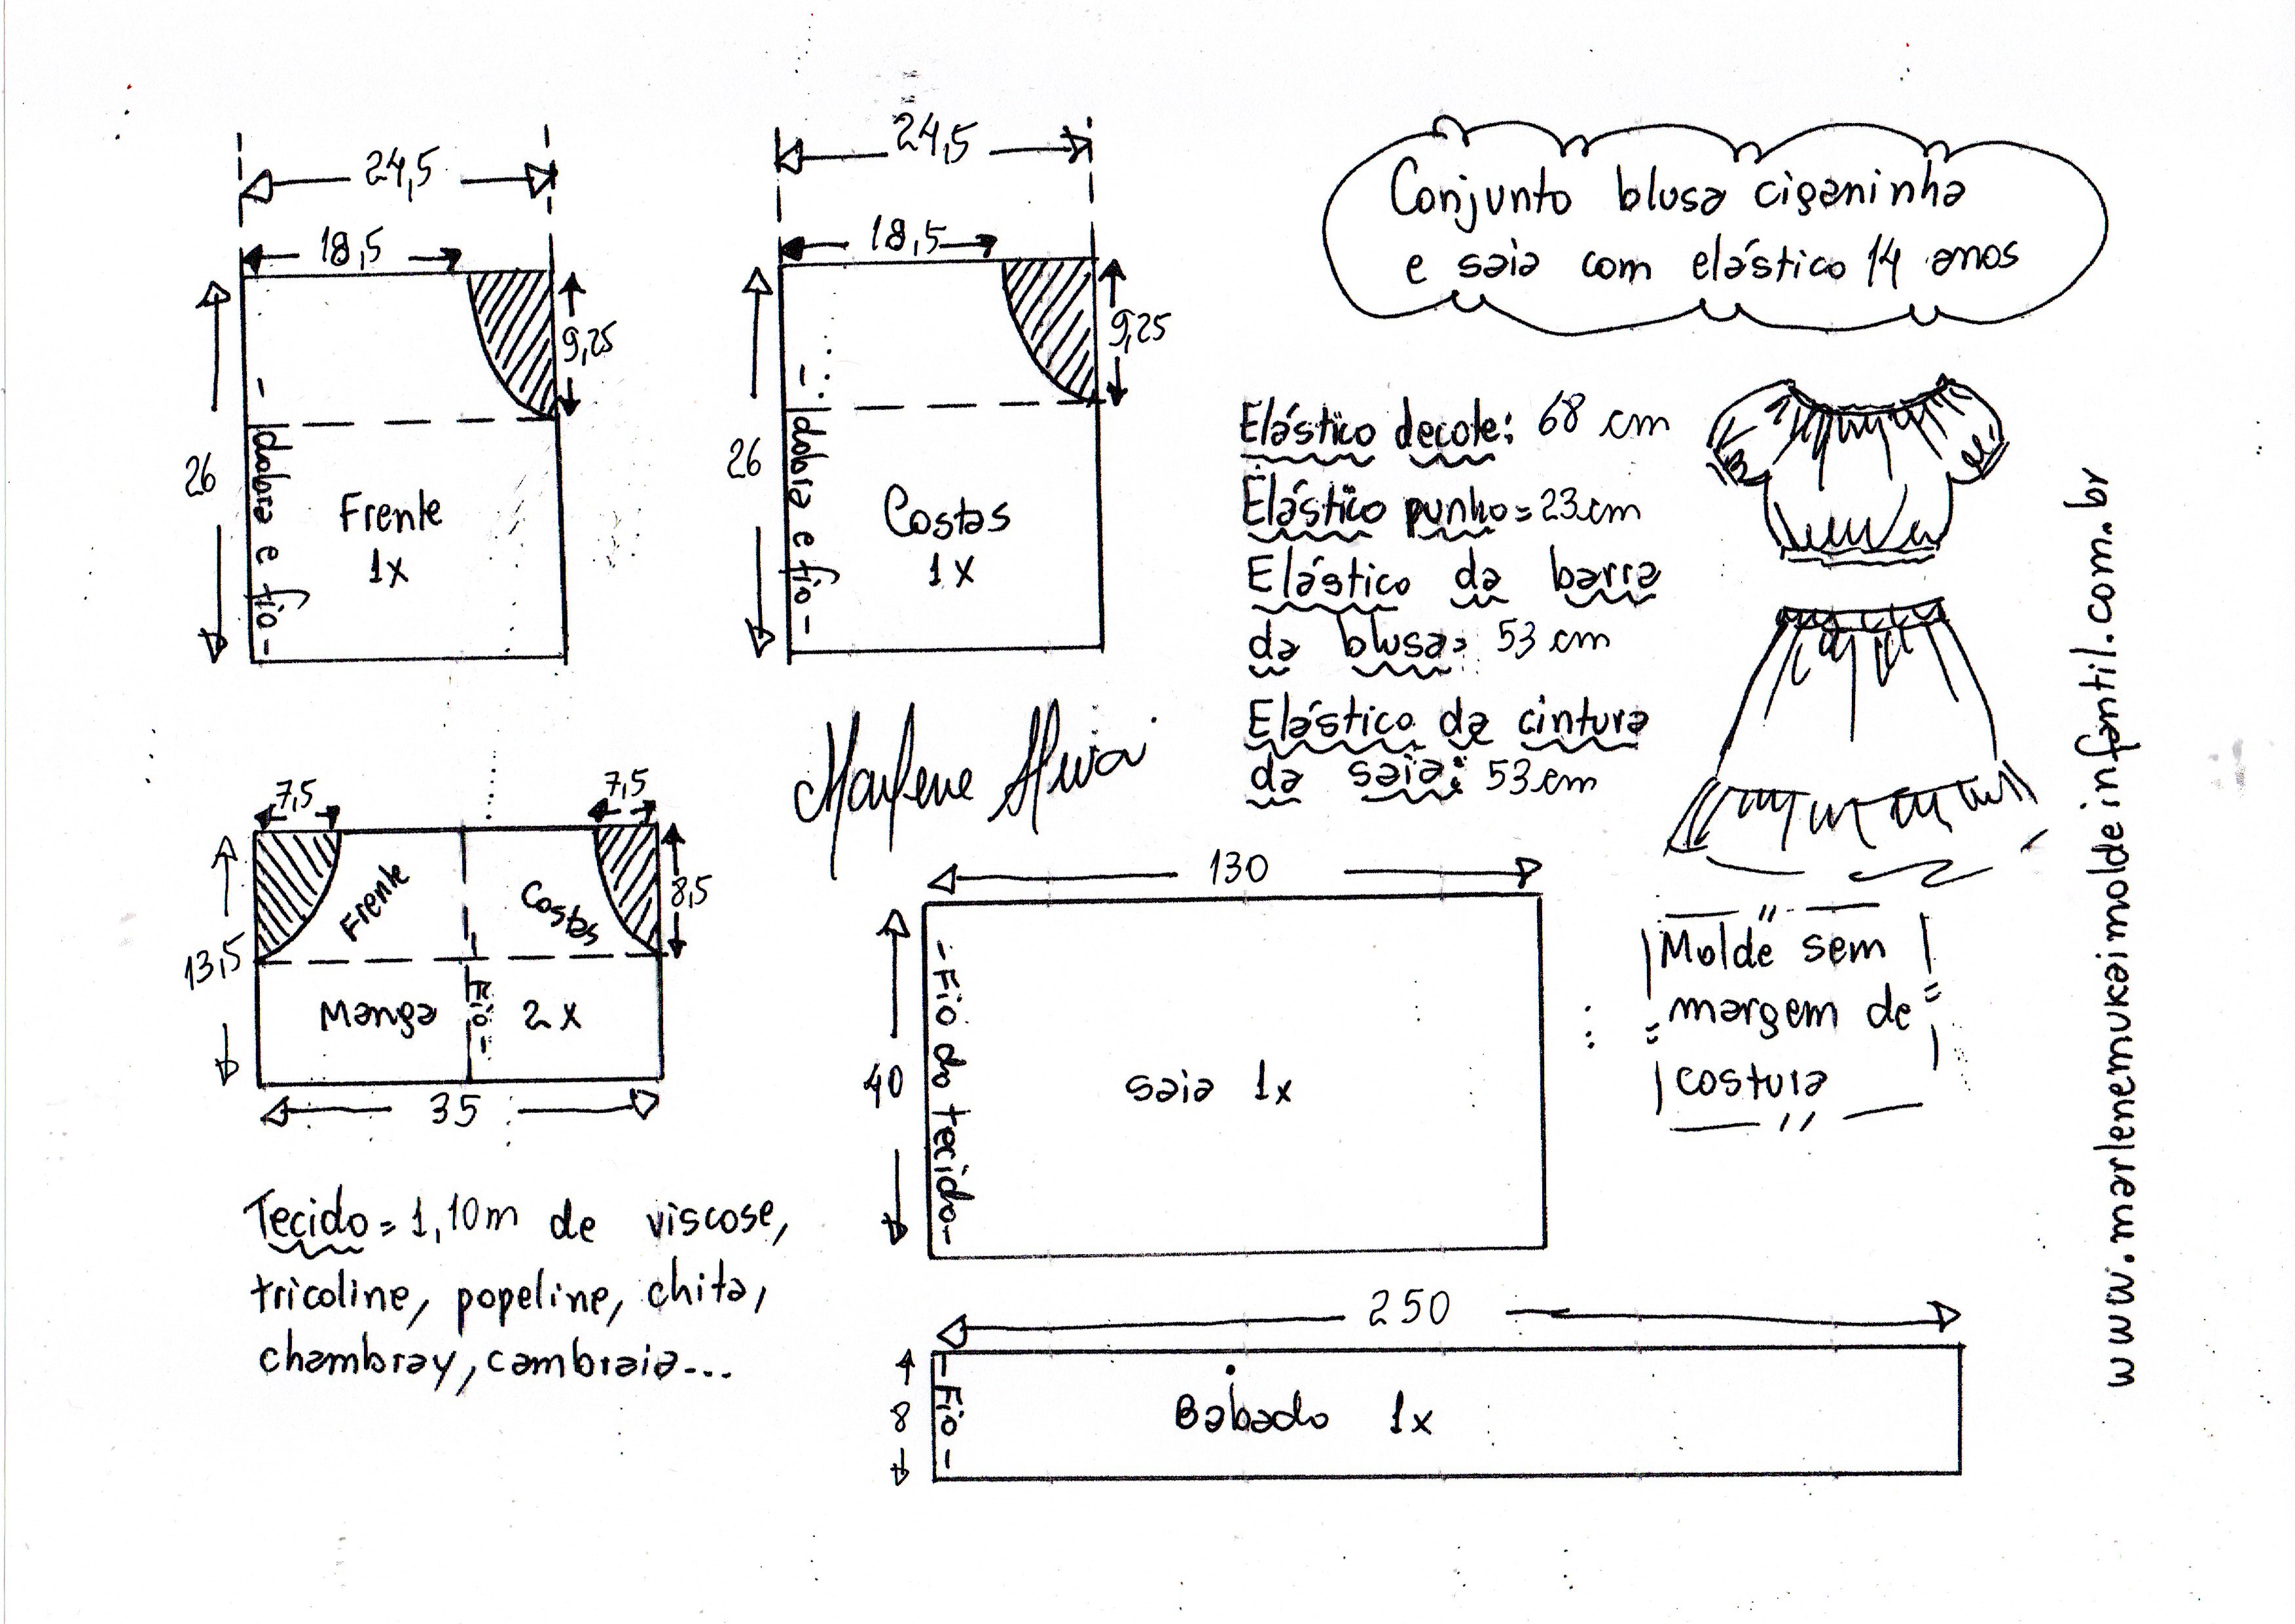 Conjunto blusa ciganinha
e saia com elástico 14 anos
24,5
18,5
9,25
26
dobra e fio
Frente
1x
24,5
18,5
9,25
26
dobra e fio
Costas
1x
Elástico decote: 68 cm
Elástico punho = 23 cm
Elástico da barra
da blusa = 53 cm
Elástico da cintura
da saia: 53 cm
www.marlenemukaimoldeinfantil.com.br
Marlene Mukai
7,5
7,5
Frente
Costas
8,5
13,5
Manga
Fio
2x
35
130
40
Fio do tecido
saia 1x
Molde sem
margem de
costura
Tecido = 1,10m de viscose,
tricoline, popeline, chita,
chambray, cambraia...
250
8
Fio
Babado 1x